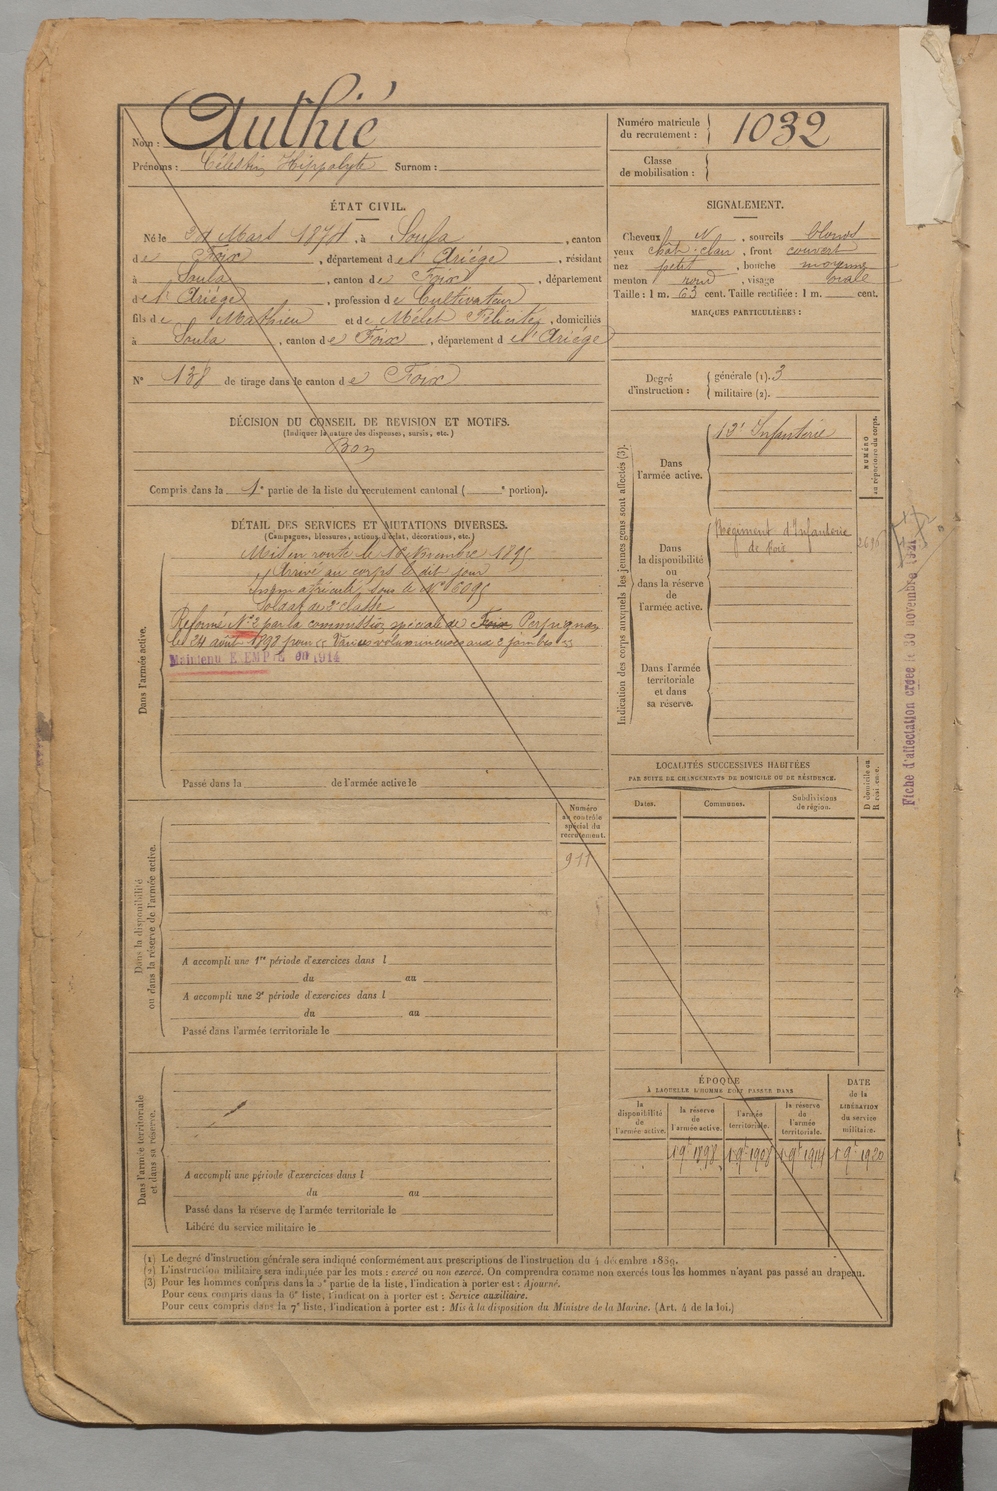 Nom : Authié
Prénoms : Célestin Hippolyte Surnom :
Numéro matricule
du recrutement : 1032
Classe
de mobilisation :
ÉTAT CIVIL.
Né le Mars 1874, à Soula, canton
de Foix, département de l'Ariége, résidant
à Soula, canton de Foix, département
de l'Ariége, profession de Cultivateur
fils de Mathieu et de Mélet Félicité, domiciliés
à Soula, canton de Foix, département d el'Ariége
N° 138 de tirage dans le canton de Foix
SIGNALEMENT.
Cheveux N, sourcils blonds
yeux chât. clair, front couvert
nez petit, bouche moyenne
menton rond, visage ovale
Taille : 1 m. 63 cent. Taille rectifiée : 1 m. cent.
MARQUES PARTICULIÈRES :
Degré
d'instruction :
générale (1). 3
militaire (2).
DÉCISION DU CONSEIL DE REVISION ET MOTIFS.
(Indiquer la nature des dispenses, sursis, etc.)
Bon
Compris dans la 1e partie de la liste du recrutement cantonal ( e portion).
DÉTAIL DES SERVICES ET MUTATIONS DIVERSES.
(Campagnes, blessures, actions d'éclat, décorations, etc.)
Dans l'armée active.
Mis en route le 16 novembre 1895
Arrivé au corps le dit jour
Immatriculé sous le N° 6095
Soldat de 2e classe
Reformé N° 2 par la commission spéciale de Foix Perpignan
le 24 août 1898 pour "Varices volumineuses aux 2 jambes"
Maintenu EXEMPTÉ en 1914
Passé dans la de l'armée active le
Indication des corps auxquels les jeunes gens sont affectés (3).
NUMÉRO
au répertoire du corps.
Dans
l'armée active.
12e Infanterie
Dans
la disponibilité
ou
dans la réserve
de
l'armée active.
Régiment d'Infanterie
de Foix
Dans l'armée
territoriale
et dans
sa réserve.
Fiche d'affectation créée le 30 novembre 1921
LOCALITÉS SUCCESSIVES HABITÉES
PAR SUITE DE CHANGEMENTS DE DOMICILE OU DE RÉSIDENCE.
D domicile ou
R résidence.
Dates.
Communes.
Subdivisions
de région.
Numéro
au contrôle
spécial du
recrutement.
911
Dans la disponibilité
ou dans la réserve de l'armée active.
A accompli une 1re période d'exercices dans l
du au
A accompli une 2e période d'exercices dans l
du au
Passé dans l'armée territoriale le
Dans l'armée territoriale
et dans sa réserve.
A accompli une période d'exercices dans l
du au
Passé dans la réserve de l'armée territoriale le
Libéré du service militaire le
ÉPOQUE
À LAQUELLE L'HOMME DOIT PASSER DANS
la
disponibilité
de
l'armée active.
la réserve
de
l'armée active.
l'armée
territoriale.
la réserve
de
l'armée
territoriale.
DATE
de la
LIBÉRATION
du service
militaire.
1 9bre 1898 1 9bre 1908 1 9bre 1914 1 9bre 1920
(1) Le degré d'instruction générale sera indiqué conformément aux prescriptions de l'instruction du 4 décembre 1889.
(2) L'instruction militaire sera indiquée par les mots : exercé ou non exercé. On comprendra comme non exercés tous les hommes n'ayant pas passé au drapeau.
(3) Pour les hommes compris dans la 5e partie de la liste, l'indication à porter est : Ajourné.
Pour ceux compris dans la 6e liste, l'indication à porter est : Service auxiliaire.
Pour ceux compris dans la 7e liste, l'indication à porter est : Mis à la disposition du Ministre de la Marine. (Art. 4 de la loi.)